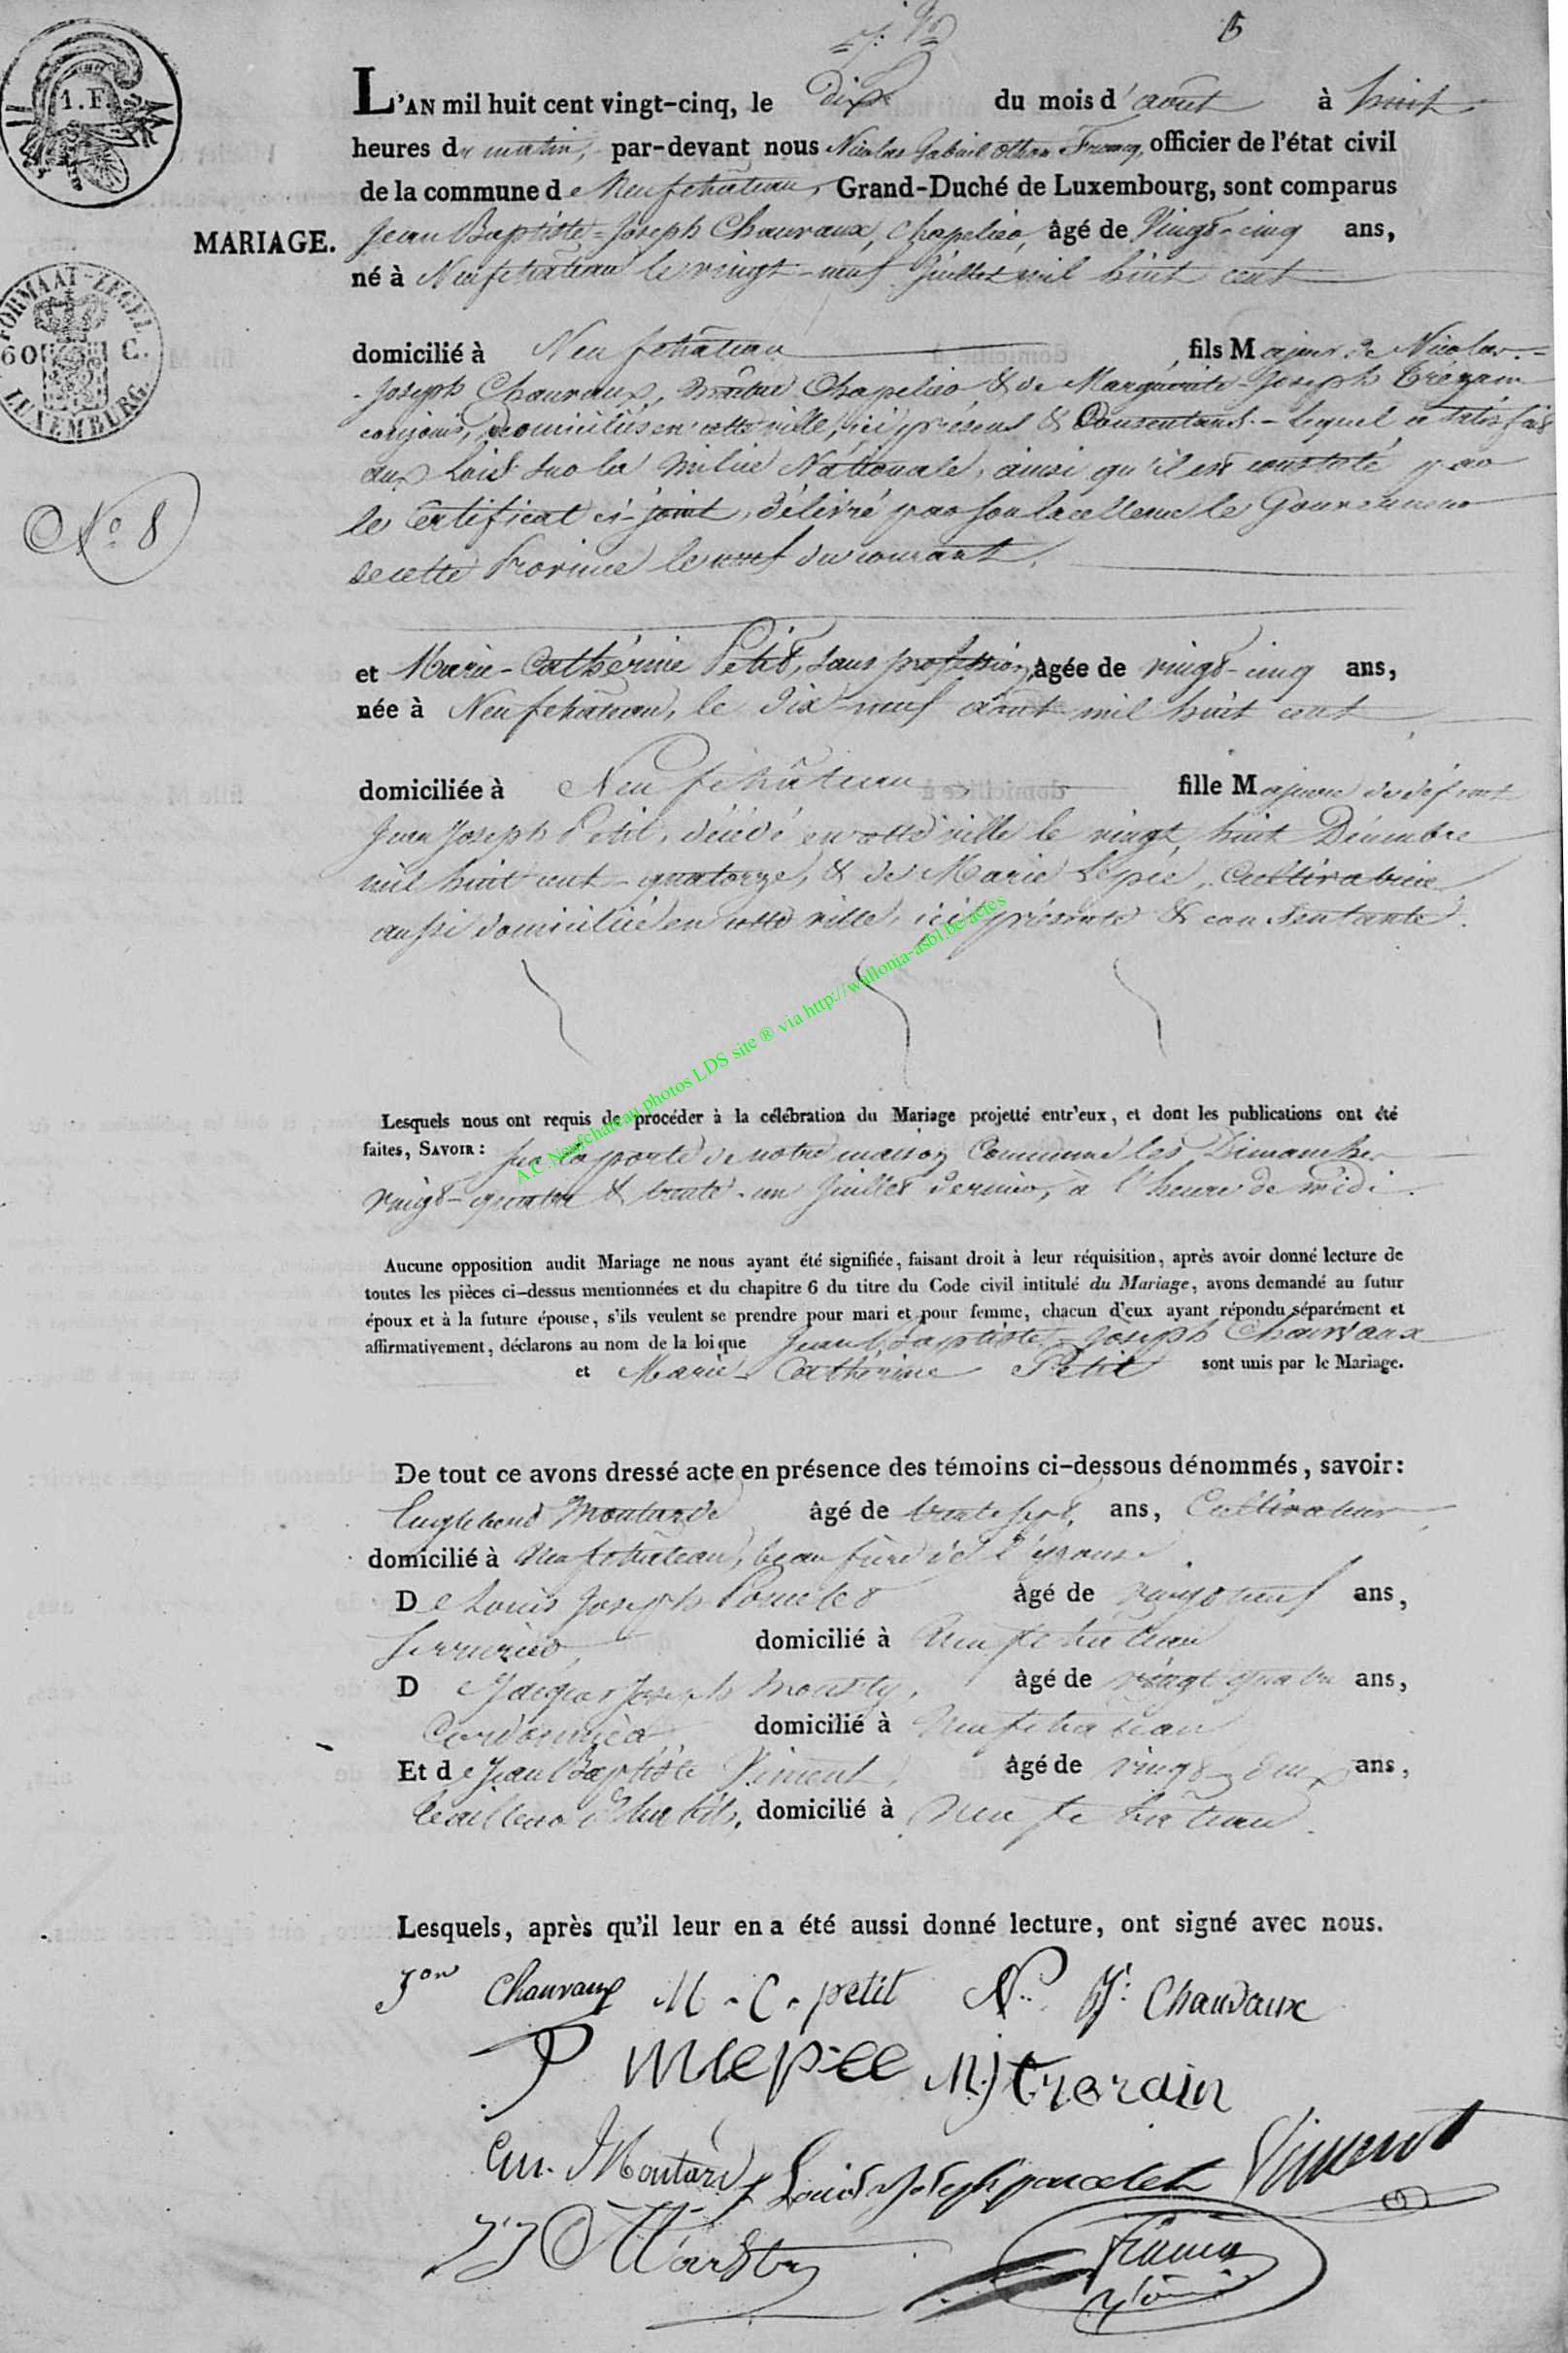 5
1. F.
L'AN mil huit cent vingt-cinq, le dix du mois d'août à huit
heures du matin, par-devant nous Nicolas officier de l'état civil
de la commune de Neufchâteau, Grand-Duché de Luxembourg, sont comparus
MARIAGE.
Jean Baptiste-Joseph Chauvaux, Chapelier, âgé de Vingt-cinq ans,
né à Neufchâteau le vingt-neuf Juillet mil huit cent
FORMAAT-ZEGEL
60 C.
LUXEMBURG
domicilié à Neufchâteau fils Majeur de Nicolas-
-Joseph Chauvaux, maître Chapelier, & de Marguerite-Joseph
conjoints, domiciliés en cette ville, ici présens & Consentans. - Lequel a satisfait
aux Lois sur la milice Nationale, ainsi qu'il est constaté par
No 8
le Certificat ci-joint, délivré par son Excellence le Gouverneur
de cette Province le neuf du courant.
et Marie-Cathérine Petit, sans profession, âgée de vingt-cinq ans,
née à Neufchâteau, le dix-neuf août mil huit cent
domiciliée à Neufchâteau fille Majeure de défunt
Jean Joseph Petit, décédé en cette ville le vingt huit Décembre
mil huit cent quatorze, & de Marie Lepée, Cultivatrice
aussi domiciliée en cette ville, ici présente & consentante.
A.C. Neufchateau photos LDS site ® via http://wallonia-asbl.be/actes
Lesquels nous ont requis de procéder à la célébration du Mariage projetté entr'eux, et dont les publications ont été
faites, SAVOIR: sur la porte de notre maison Commune les Dimanches
vingt-quatre & trente-un Juillet dernier, à l'heure de midi.
Aucune opposition audit Mariage ne nous ayant été signifiée, faisant droit à leur réquisition, après avoir donné lecture de
toutes les pièces ci-dessus mentionnées et du chapitre 6 du titre du Code civil intitulé du Mariage, avons demandé au futur
époux et à la future épouse, s'ils veulent se prendre pour mari et pour femme, chacun d'eux ayant répondu séparément et
affirmativement, déclarons au nom de la loi que Jean Baptiste-Joseph Chauvaux
et Marie-Cathérine Petit sont unis par le Mariage.
De tout ce avons dressé acte en présence des témoins ci-dessous dénommés, savoir:
Englebert Moutarde âgé de trente sept ans, Cultivateur
domicilié à Neufchâteau, beau frère de l'épouse.
De Louis Joseph Poncelet âgé de vingt neuf ans,
Serrurier, domicilié à Neufchâteau
D Jacques Joseph âgé de vingt quatre ans,
Cordonnier domicilié à Neufchâteau
Et de Jean Baptiste Viment, âgé de vingt deux ans,
tailleur d'habits, domicilié à Neufchâteau.
Lesquels, après qu'il leur en a été aussi donné lecture, ont signé avec nous.
Chauvaux M. C. petit N. J. Chauvaux
mlepee MJ
En. Moutarde Louis Joseph poncelet Viment
JJ